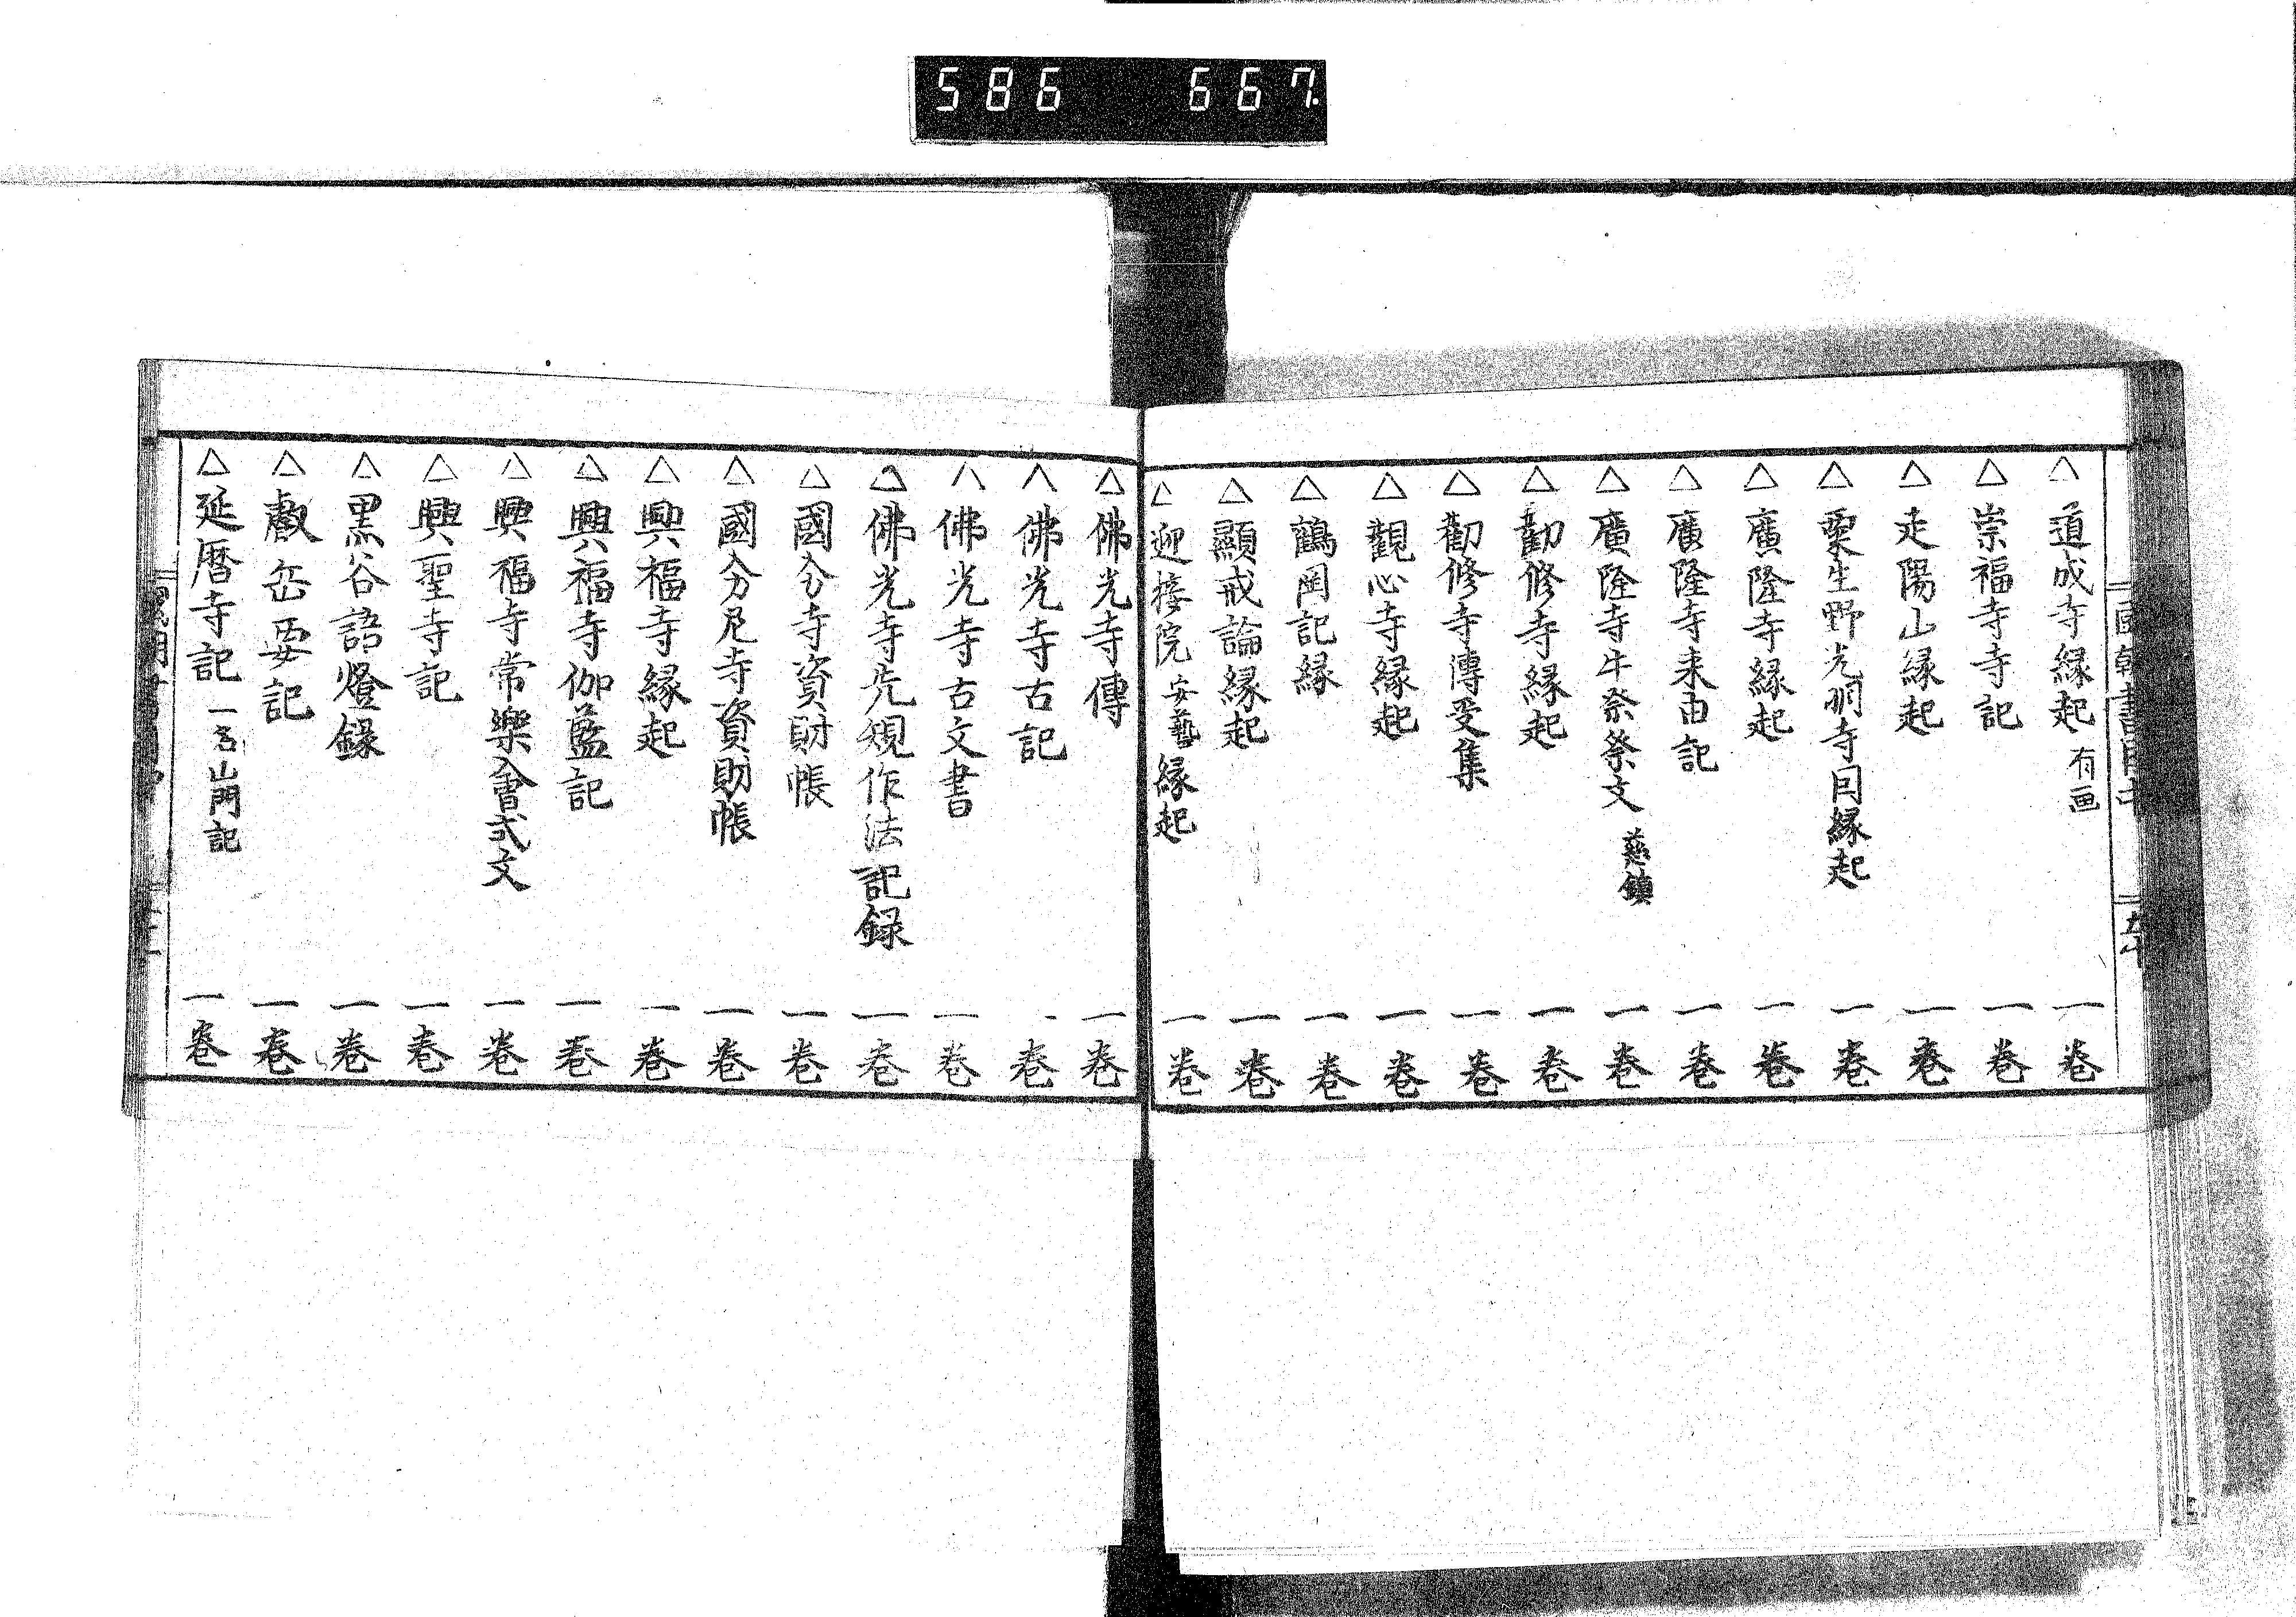 586 667
△道成寺縁起 有画 一卷
△崇福寺寺記 一卷
△走陽山縁起 一卷
△粟生野光明寺同縁起 一卷
△廣隆寺縁起 一卷
△廣隆寺来由記 一卷
△廣隆寺牛祭祭文 慈鎮 一卷
△勸修寺縁起 一卷
△勸修寺傳受集 一卷
△觀心寺縁起 一卷
△鶴岡記縁 一卷
△顯戒論縁起 一卷
△迎接院安藝縁起 一卷
△佛光寺傳 一卷
△佛光寺古記 一卷
△佛光寺古文書 一卷
△佛光寺先規作法記録 一卷
△國分寺資財帳 一卷
△國分尼寺資財帳 一卷
△興福寺縁起 一卷
△興福寺伽藍記 一卷
△興福寺常樂會式文 一卷
△興聖寺記 一卷
△黒谷語燈録 一卷
△叡岳要記 一卷
△延暦寺記 一名山門記 一卷